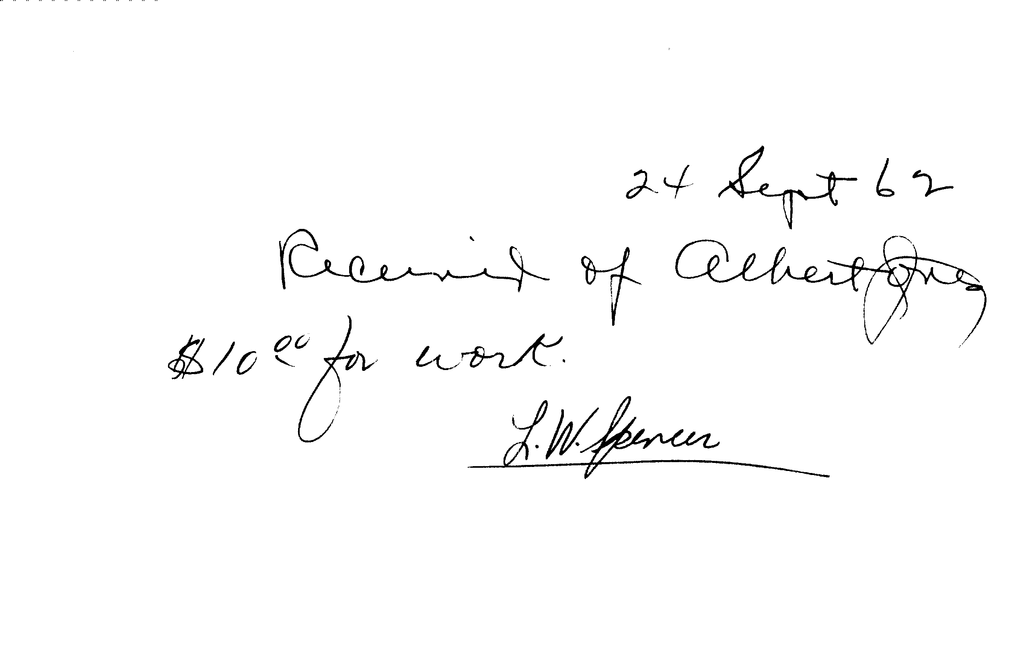 24 Sept 62
Received of Albert Jones
$10.00 for work.
L. W. Spencer